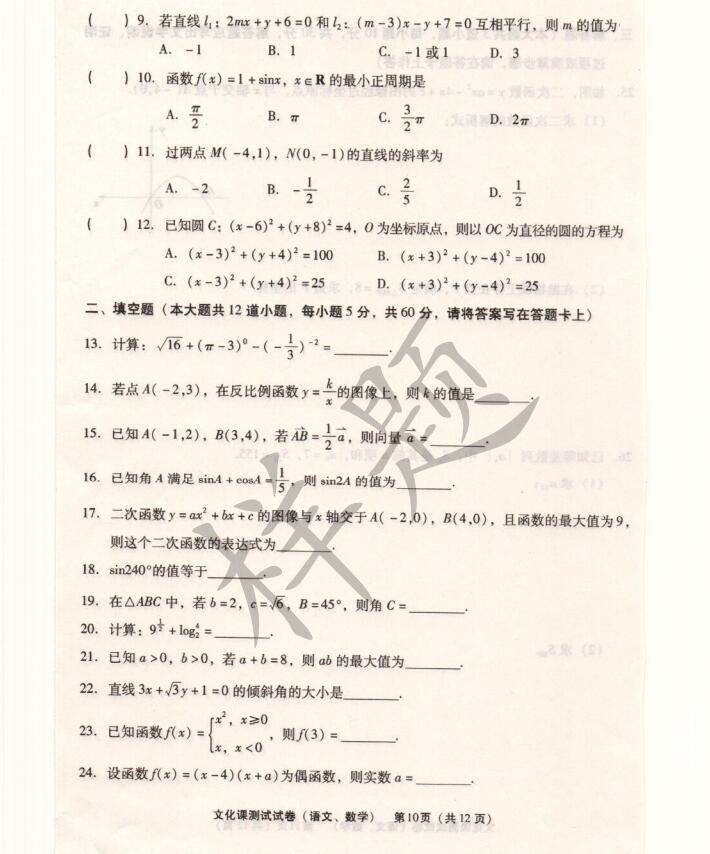 ( ) 9. 若直线 l₁: 2mx+y+6=0 和 l₂: (m-3)x-y+7=0 互相平行，则 m 的值为
A. -1 B. 1 C. -1或1 D. 3
( ) 10. 函数 f(x)=1+sinx，x∈R 的最小正周期是
A. π/2 B. π C. 3/2 π D. 2π
( ) 11. 过两点 M(-4,1)，N(0,-1)的直线的斜率为
A. -2 B. -1/2 C. 2/5 D. 1/2
( ) 12. 已知圆 C: (x-6)²+(y+8)²=4，O 为坐标原点，则以 OC 为直径的圆的方程为
A. (x-3)²+(y+4)²=100 B. (x+3)²+(y-4)²=100
C. (x-3)²+(y+4)²=25 D. (x+3)²+(y-4)²=25
二、填空题（本大题共 12 道小题，每小题 5 分，共 60 分，请将答案写在答题卡上）
13. 计算：√16+(π-3)⁰-(-1/3)⁻²=______.
14. 若点 A(-2,3)，在反比例函数 y=k/x 的图像上，则 k 的值是______.
15. 已知 A(-1,2)，B(3,4)，若 A⃗B⃗=1/2 a⃗，则向量 a⃗=______.
16. 已知角 A 满足 sinA+cosA=1/5，则 sin2A 的值为______.
17. 二次函数 y=ax²+bx+c 的图像与 x 轴交于 A(-2,0)，B(4,0)，且函数的最大值为 9，
则这个二次函数的表达式为______.
18. sin240°的值等于______.
19. 在△ABC 中，若 b=2，c=√6，B=45°，则角 C=______.
20. 计算：9^(1/2)+log₂⁴=______.
21. 已知 a>0，b>0，若 a+b=8，则 ab 的最大值为______.
22. 直线 3x+√3y+1=0 的倾斜角的大小是______.
23. 已知函数 f(x)={x²，x≥0
x，x<0，则 f(3)=______.
24. 设函数 f(x)=(x-4)(x+a)为偶函数，则实数 a=______.
文化课测试试卷（语文、数学） 第10页（共12页）
样题